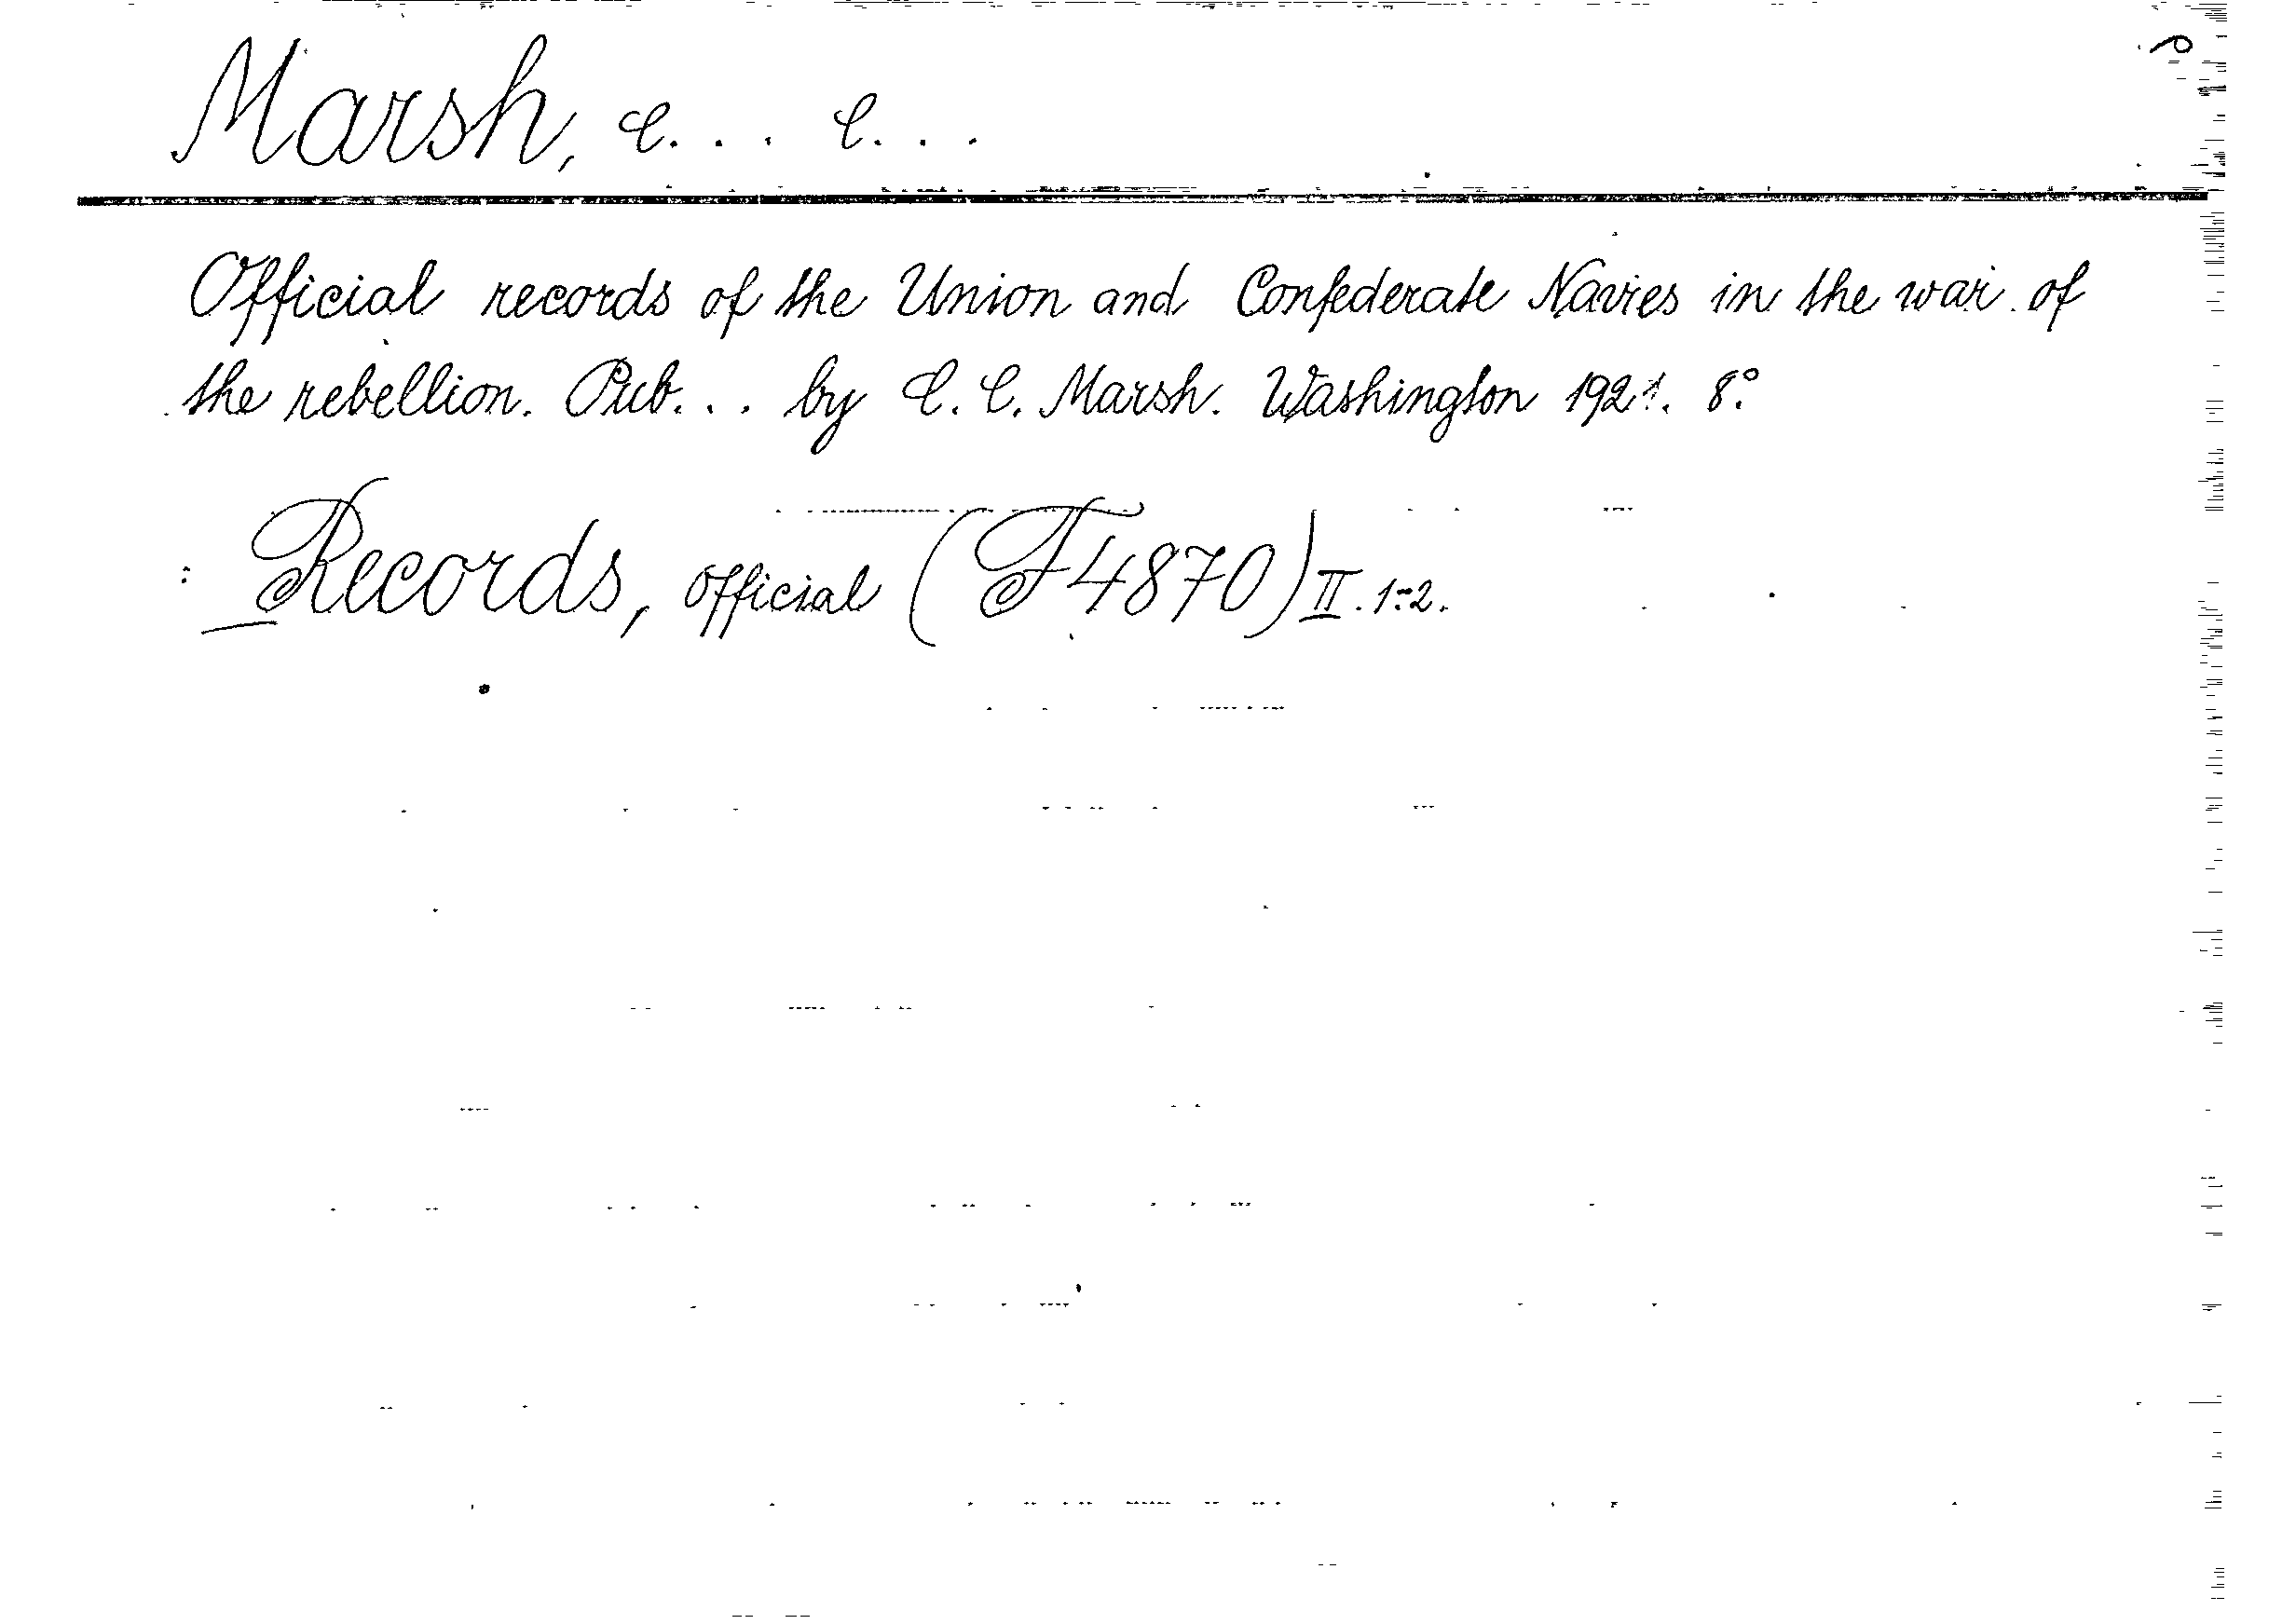 Marsh, C... C...
Official records of the Union and Confederate Navies in the war of
the rebellion. Pub... by C. C. Marsh. Washington 1921. 8°
: Records, official (F4870) II. 1-2.